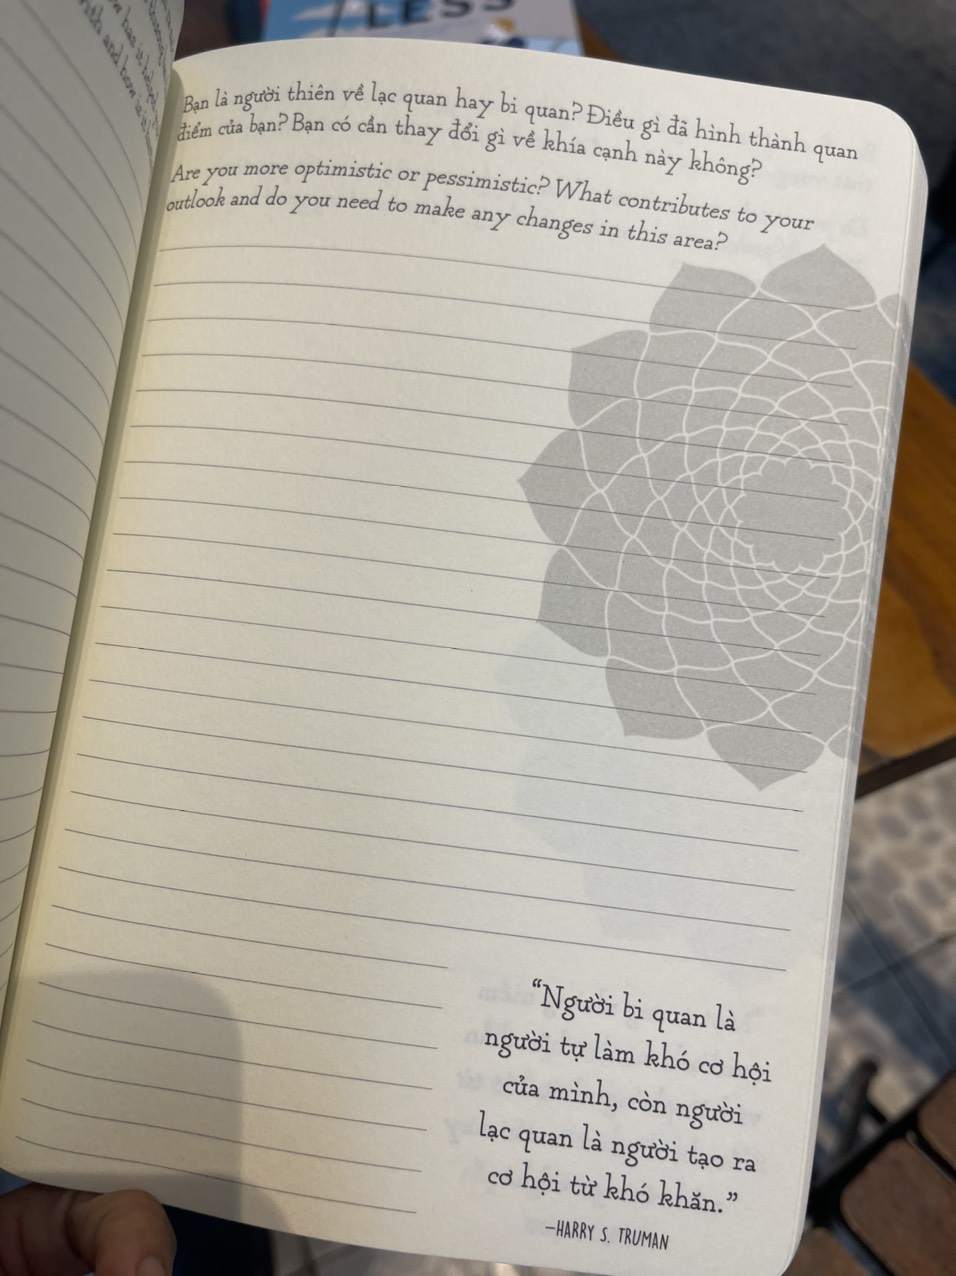 LESS
Bạn là người thiên về lạc quan hay bi quan? Điều gì đã hình thành quan
điểm của bạn? Bạn có cần thay đổi gì về khía cạnh này không?
Are you more optimistic or pessimistic? What contributes to your
outlook and do you need to make any changes in this area?
“Người bi quan là
người tự làm khó cơ hội
của mình, còn người
lạc quan là người tạo ra
cơ hội từ khó khăn.”
—HARRY S. TRUMAN